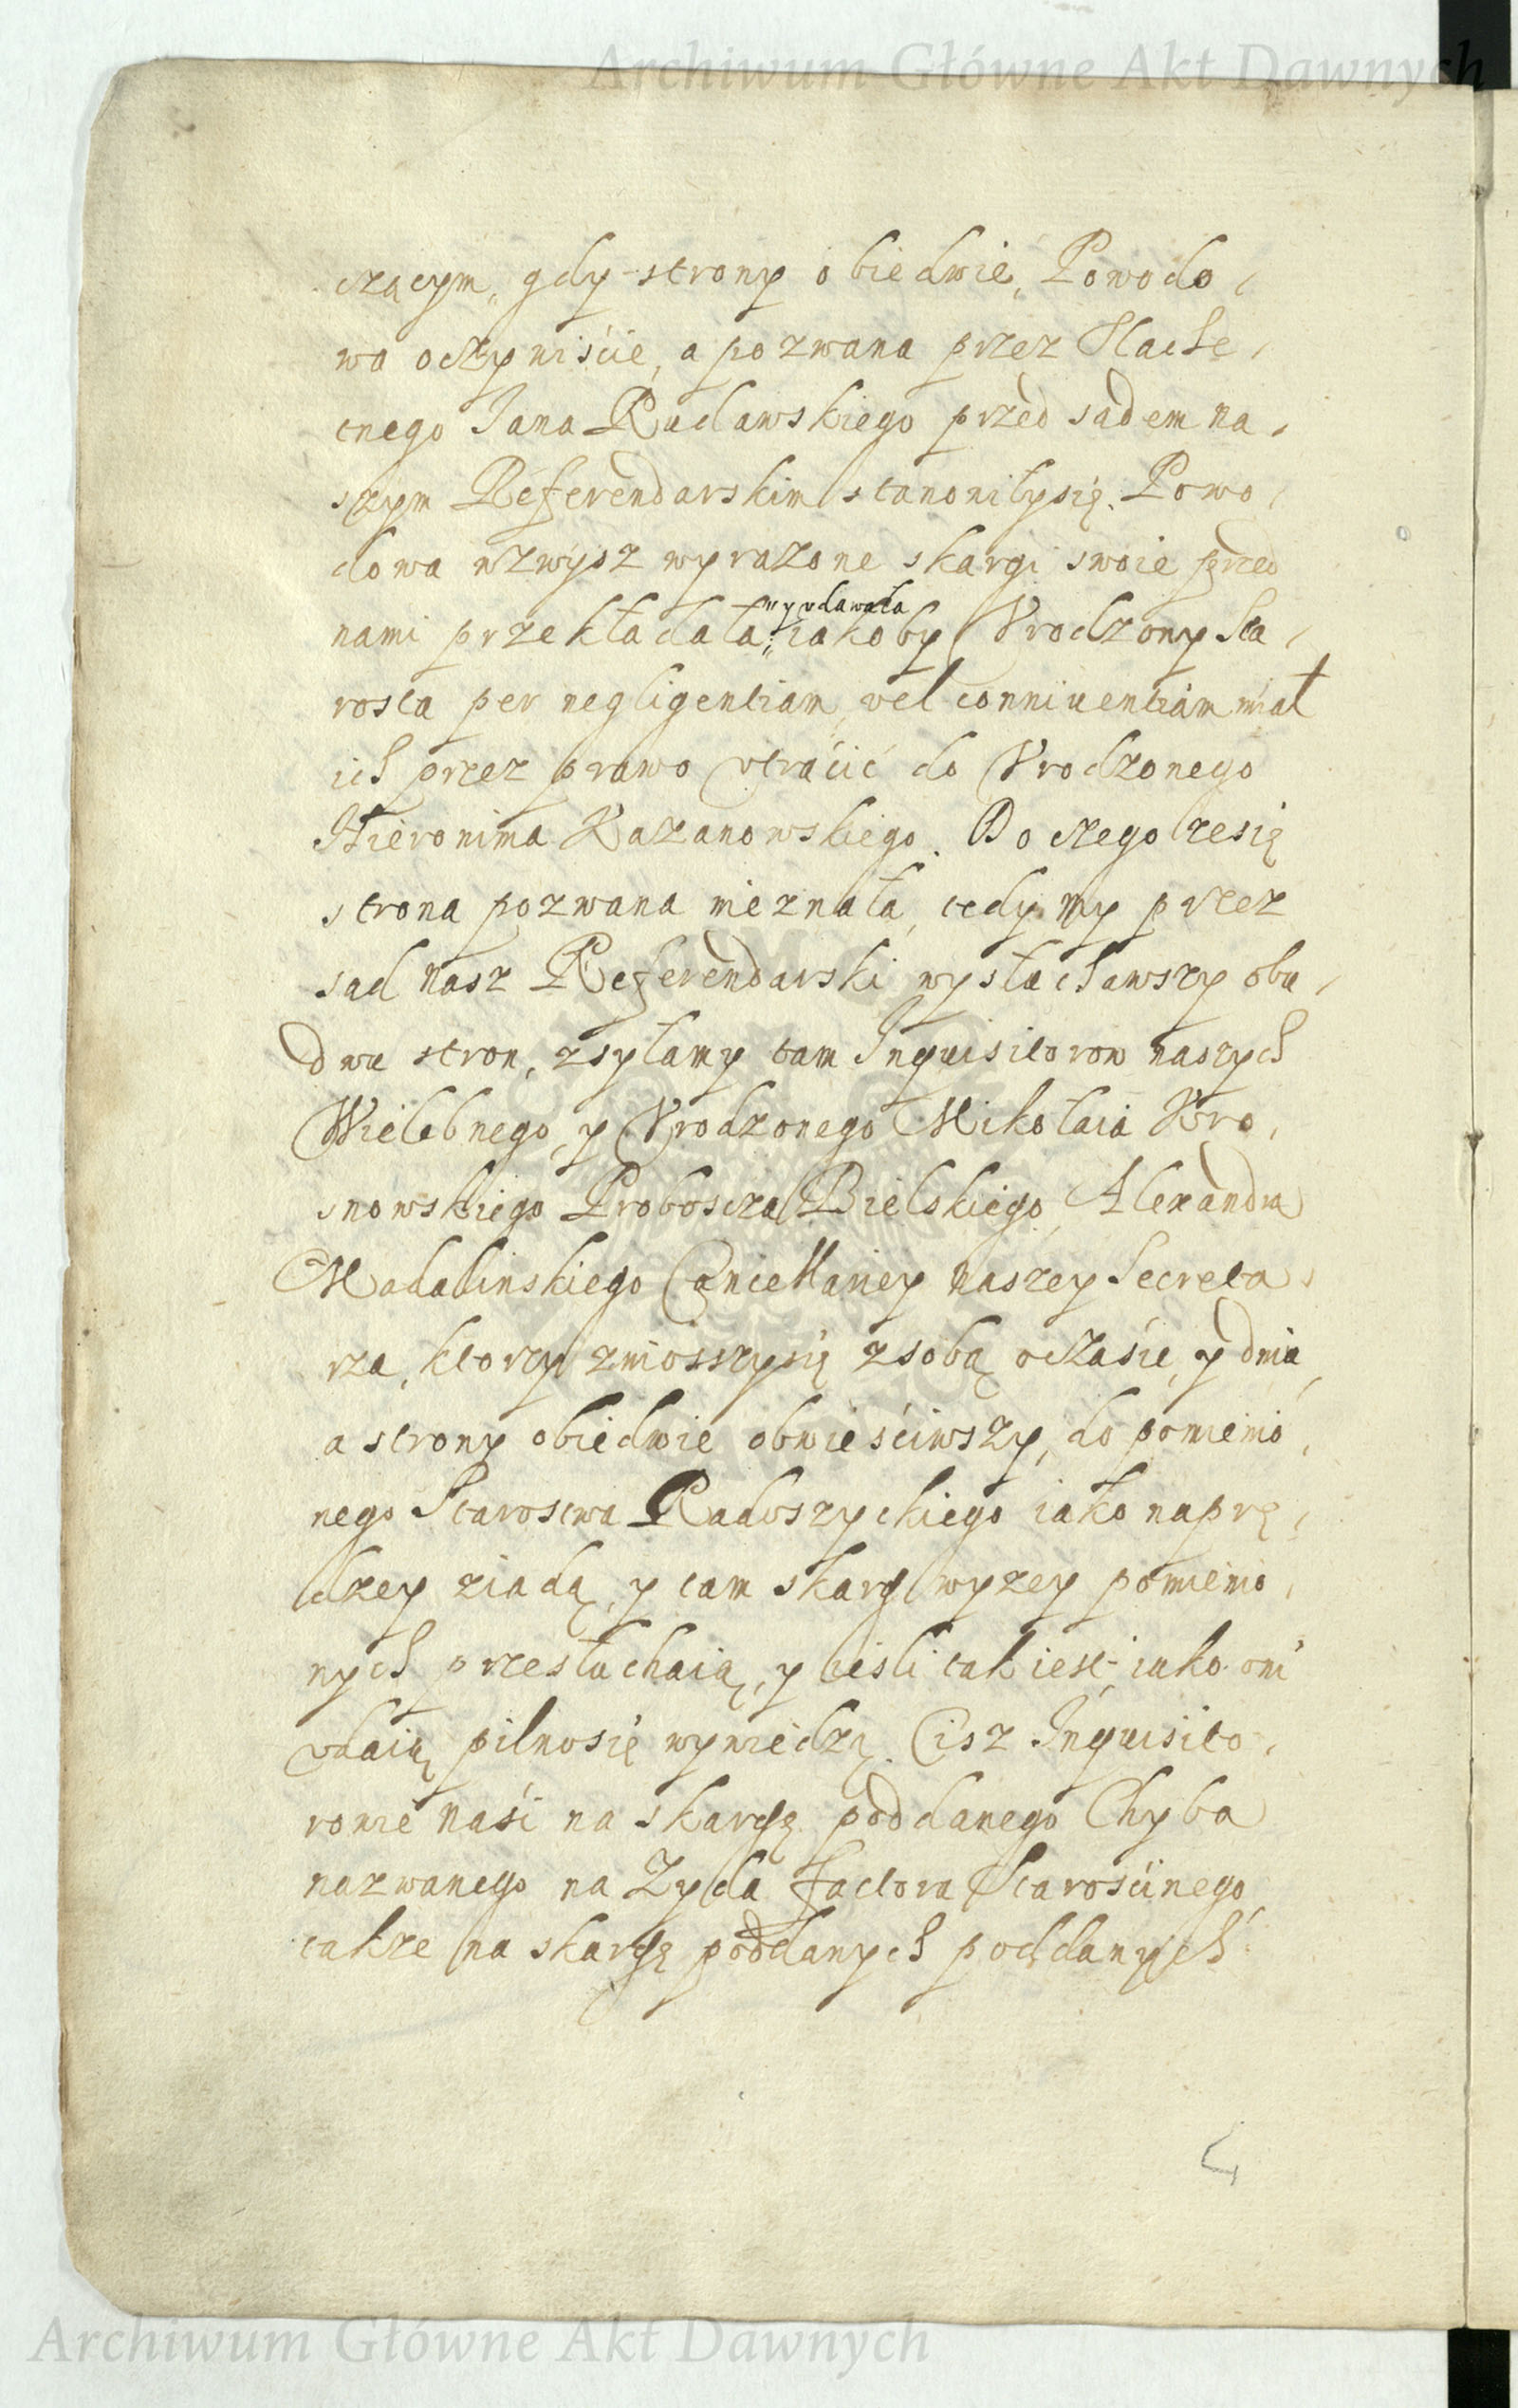 Archiwum Główne Akt Dawnych
czącym, gdy strony obiedwie, Powodo,
wa oczywiście, a pozwana przez Szlache,
tnego Jana Rudawskiego przed sądem na,
szym Referendarskim stanowiłysię. Powo,
dowa wzwysz wyrazone skargi swoie przed
nami przekładała, y udawała iakoby Vrodzony Sta,
rosta per negligentiam, vel conniuentiam miał
ich przez prawo vtracić do Vrodzonego
Hieronima Kazanowskiego. Do czego zesię
strona pozwana nieznała, tedy my przez
sąd nasz Referendarski wysłuchawszy obu,
dwu stron, zsyłamy tam Inquisitorow naszych
Wielebnego, y Vrodzonego Mikołaia Kro,
snowskiego Proboscza Bielskiego, Alexandra
Madalinskiego Cancellariey naszey Secreta,
rza, ktorzy zniosszysię zsobą oczasie, y dniu,
a strony obiedwie obwieściwszy, do pomienio,
nego Starostwa Radoszyckiego iako naprę,
dzey ziadą, y tam skarg wyzey pomienio,
nych przesłuchaią, y iesli tak iest, iako oni
vdaią pilnosię wywiedzą. Ciz Inquisito,
rowie nasi na skargę poddanego Chyba
nazwanego na Zyda Factora Starosciinego
takze na skargę poddanych poddanych
4
Archiwum Główne Akt Dawnych